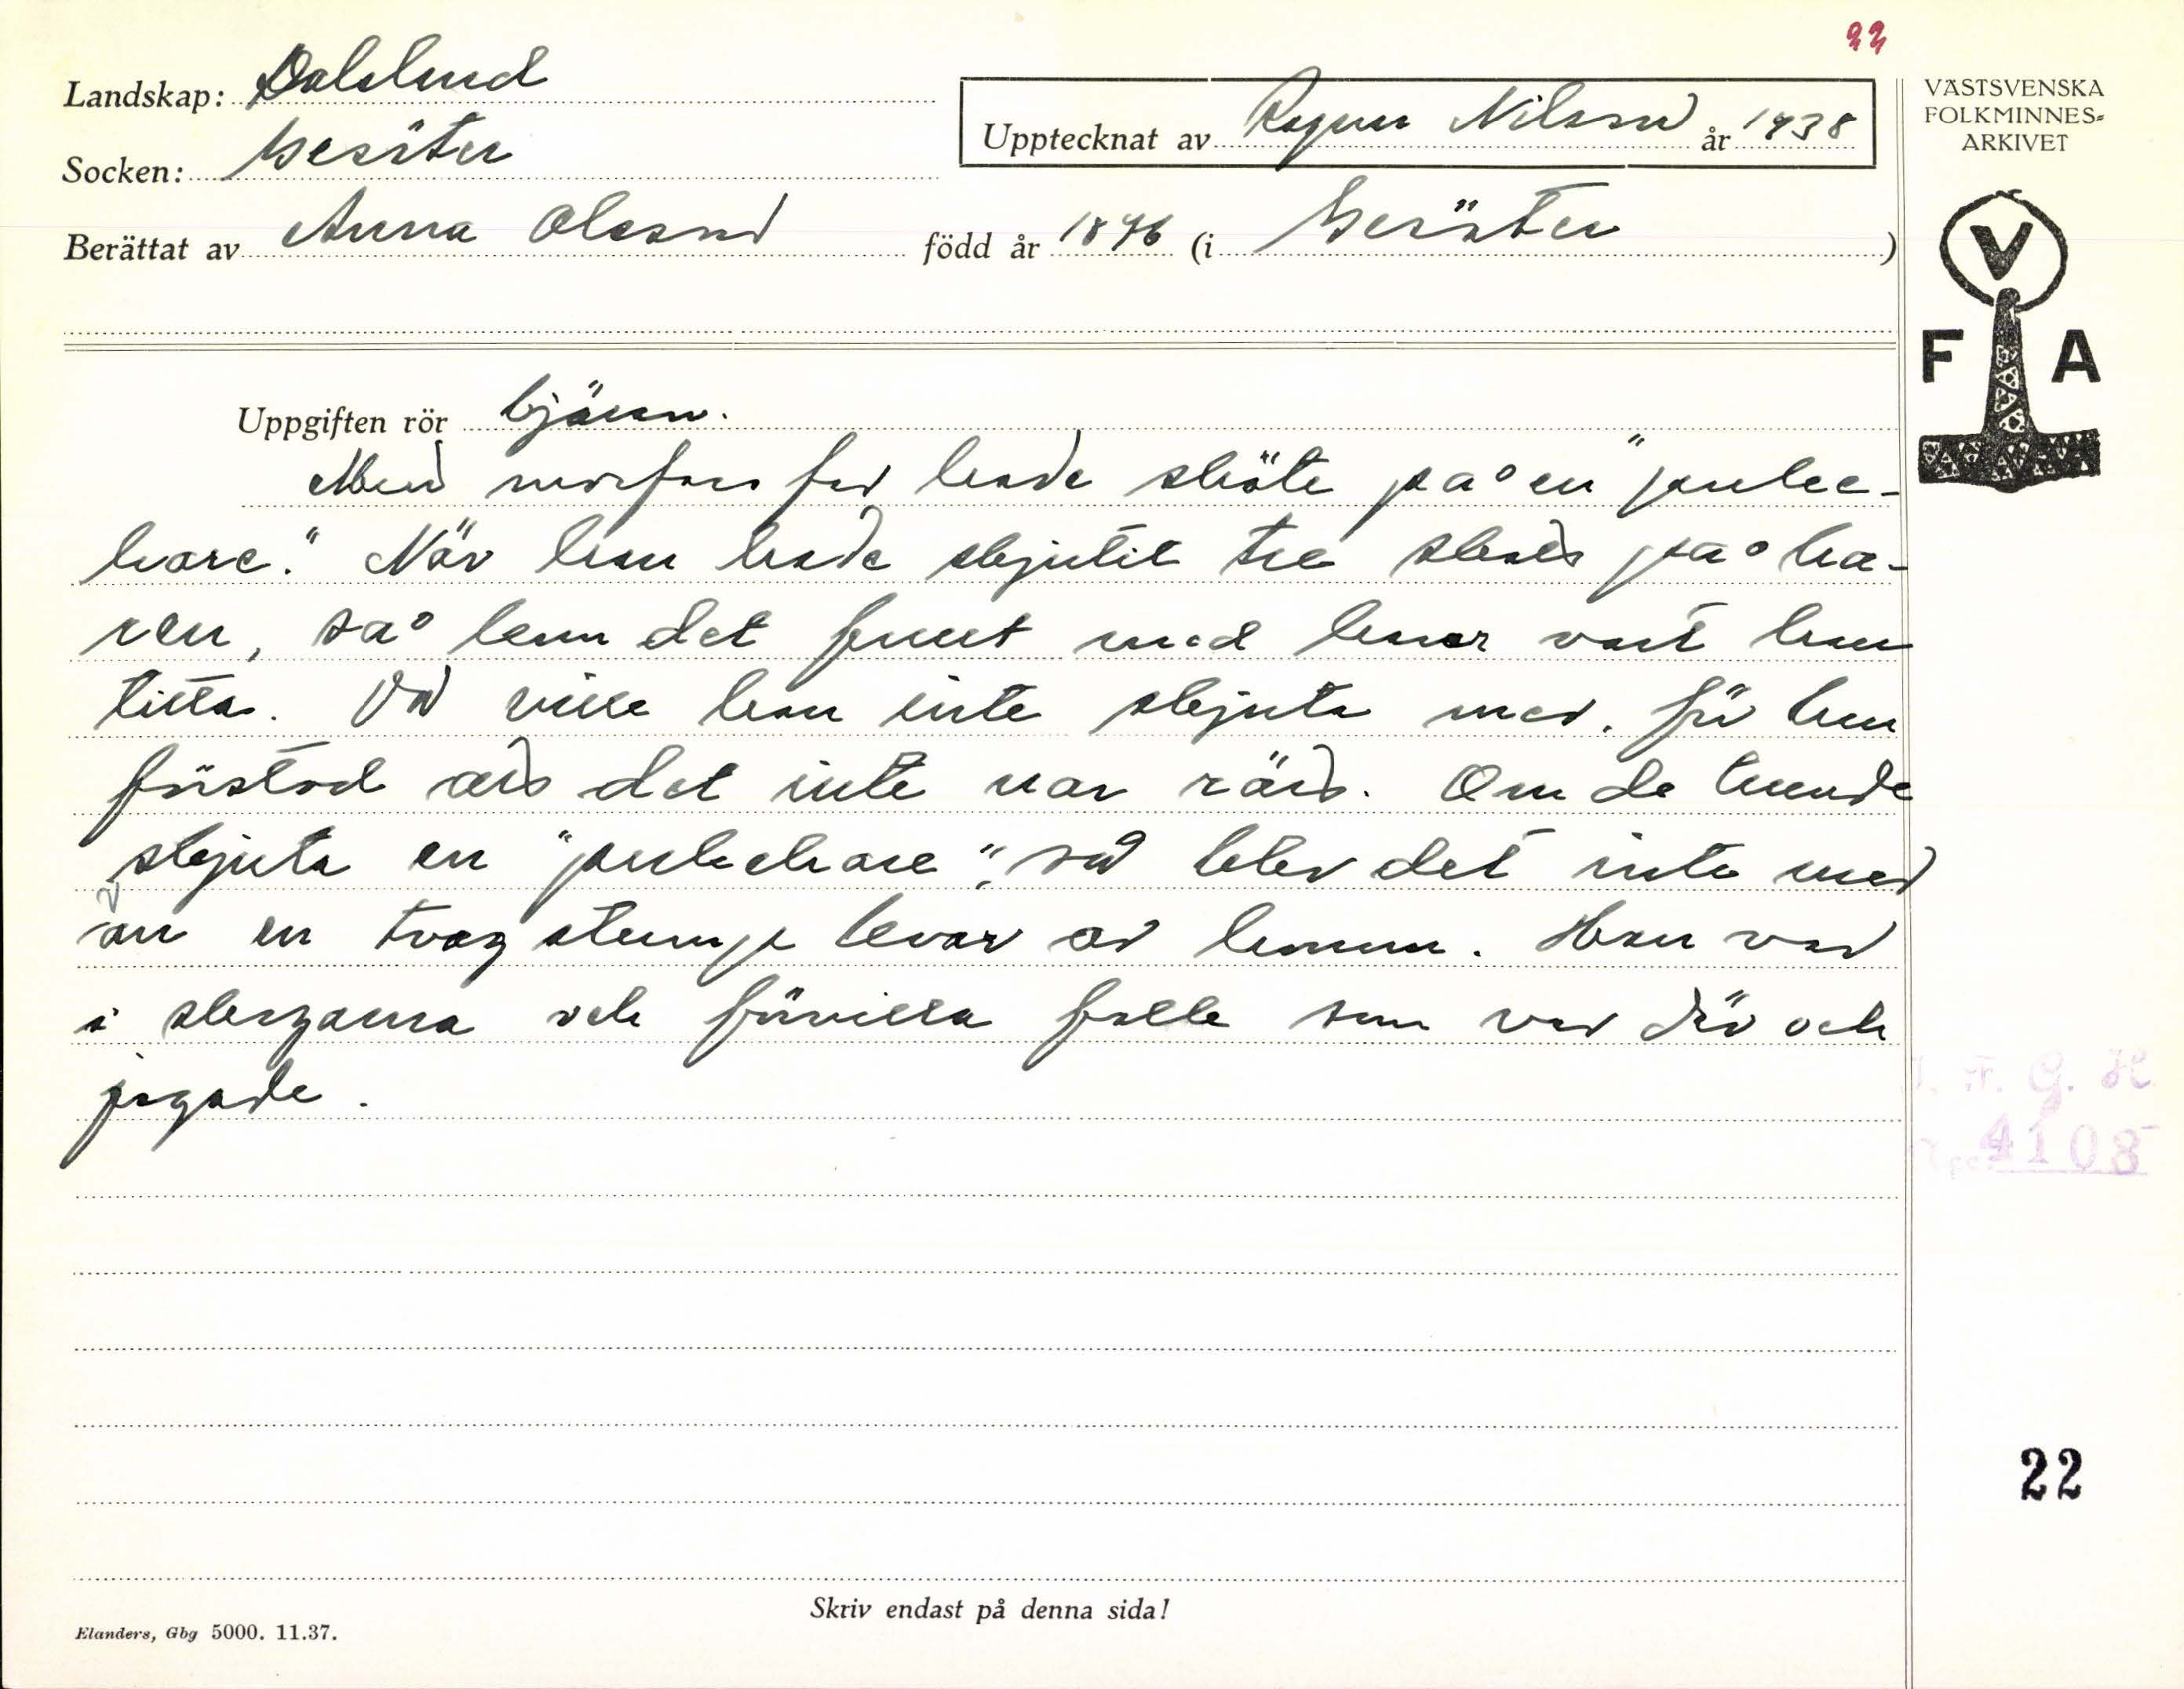 22
Landskap: Dalsland
Socken: Gesäter
Upptecknat av Ragnar Nilsson år 1938
Berättat av Anna Olsson född år 1846 (i Gesäter)
VÄSTSVENSKA
FOLKMINNES-
ARKIVET
V
F A
Uppgiften rör bjäran.
Men morfars far hade sköte på en "puke-
hare." När han hade skjutit tre skott på ha-
ren, så kom det fram med harar vart han
titta. Då ville han inte skjuta mer, för han
förstod att det inte var rätt. Om de kunde
skjuta en "pukehare", så blev det inte mer
än en tvagstump kvar av honom. Han var
i skogarna och förvilla folk som var där och
jagade.
I. F. G. H.
4108
22
Skriv endast på denna sida!
Elanders, Gbg 5000. 11.37.